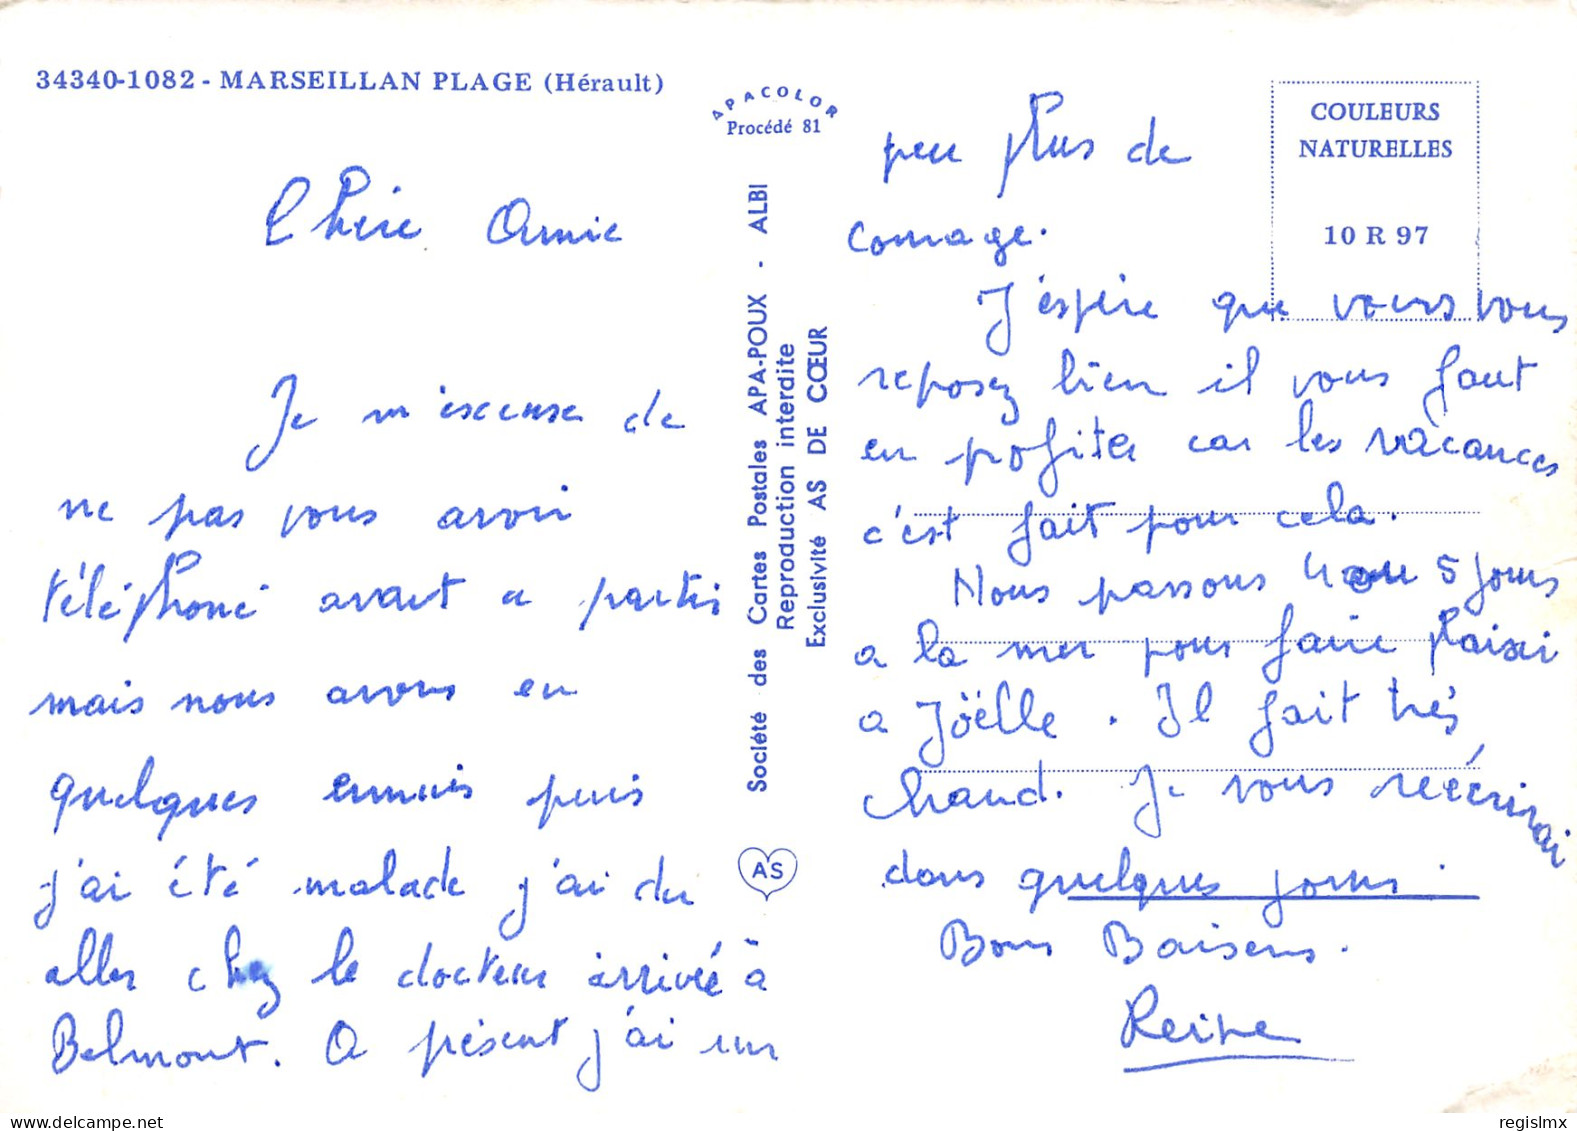 34340-1082 - MARSEILLAN PLAGE (Hérault)
APACOLOR
Procédé 81
Chère Amie
Je m'excuse de
ne pas vous avoir
téléphoné avant a partir
mais nous avons eu
quelques ennuis puis
j'ai été malade j'ai du
aller chez le docteur arrivée à
Belmont. A présent j'ai un
Société des Cartes Postales APA-POUX - ALBI
Reproduction interdite
Exclusivité AS DE CŒUR
AS
COULEURS
NATURELLES
10 R 97
peu plus de
courage.
J'espère que vous vous
reposez bien il vous faut
en profiter car les vacances
c'est fait pour cela.
Nous passons 4 ou 5 jours
a la mer pour faire plaisir
a Joëlle. Il fait très
chaud. Je vous réécrirai
dans quelques jours.
Bons Baisers.
Reine
regislmx